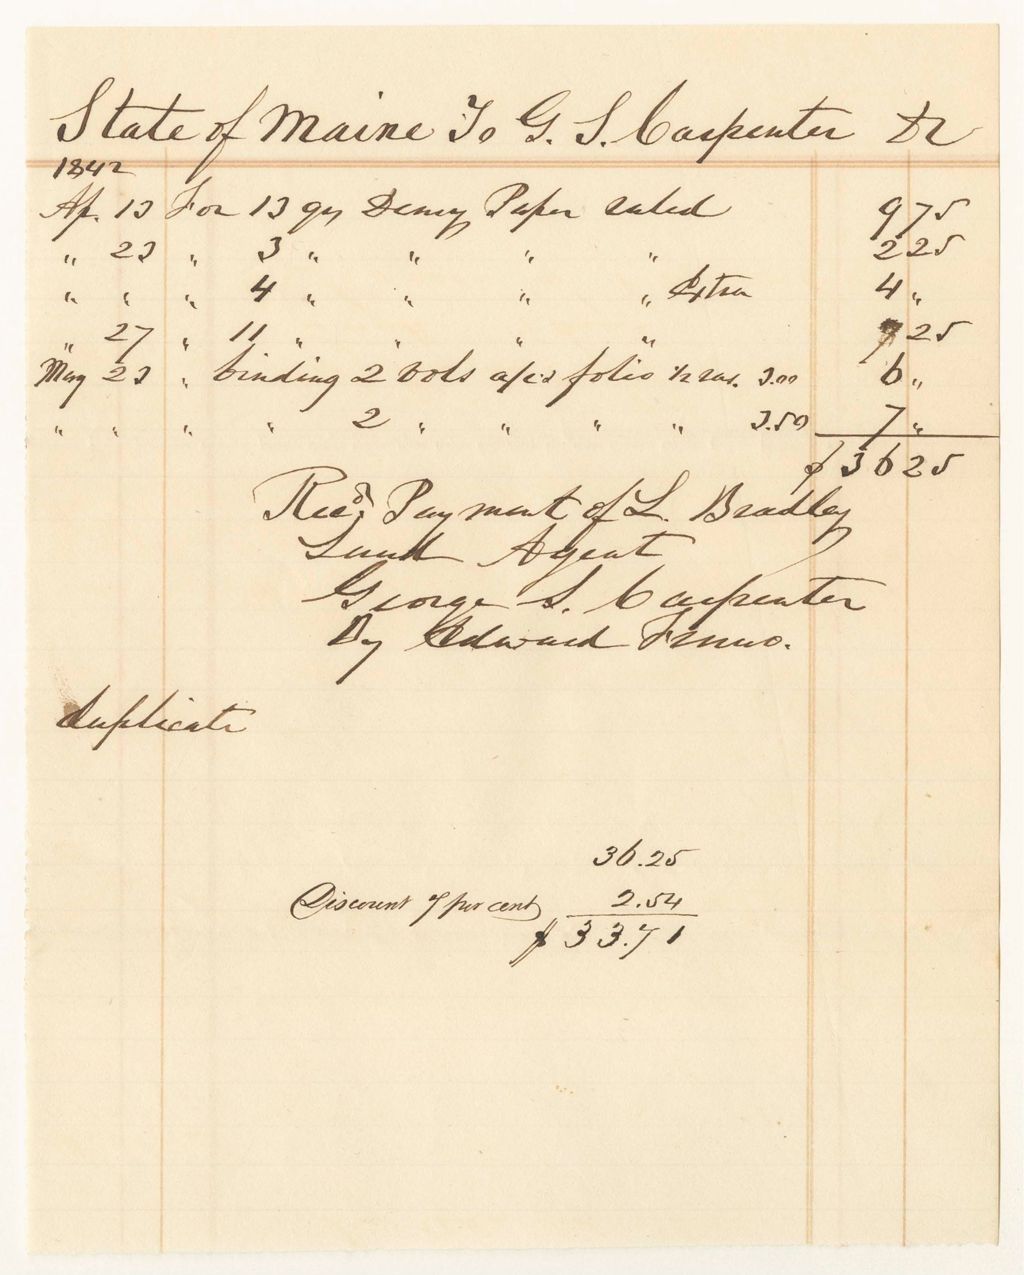 State of Maine To G. S. Carpenter Dr
1842
Ap. 13 For 13 qrs Demy Paper ruled 9 75
" 23 " 3 " " " " 2 25
" " " 4 " " " " Extra 4 "
" 27 " 11 " " " " 7 25
May 23 " binding 2 vols a/cs folio 1/2 rus. 3.00 6 "
" " " " 2 " " " " 3.50 7 "
$36 25
Recd Payment of L. Bradley
Land Agent
George S. Carpenter
By Edward Fenno.
Duplicate
36.25
Discount 7 per cent 2.54
$33.71